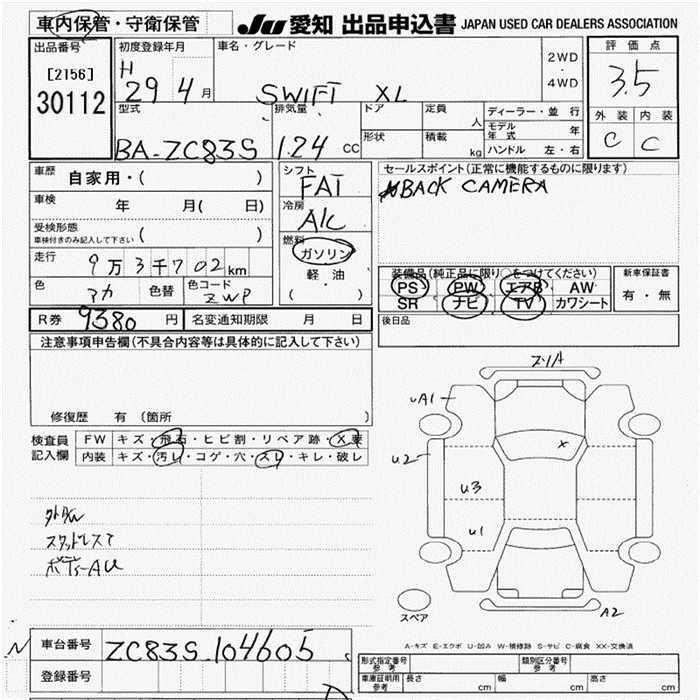 車内保管・守衛保管
JU 愛知 出品申込書 JAPAN USED CAR DEALERS ASSOCIATION
出品番号
[2156]
30112
初度登録年月
H
29 4 月
車名・グレード
SWIFT XL
2WD
・
4WD
評価点
3.5
外装 内装
C C
型式
BA-ZC83S
排気量
1.24 CC
ドア
形状
定員
人
積載
kg
ディーラー・並行
モデル年式 年
ハンドル 左・右
車歴
自家用・( )
車検
年 月( 日)
受検形態
車検付きのみ記入して下さい ( )
走行
9万3千702km
色
アカ
色替
色コード
ZWP
シフト
FAT
冷房
A/C
燃料
ガソリン
軽・油
( ・ )
セールスポイント(正常に機能するものに限ります)
BACK CAMERA
装備品(純正品に限り○をつけてください)
PS PW エアB AW
SR ナビ TV カワシート
新車保証書
有・無
R券 9380 円
名変通知期限 月 日
後日品
注意事項申告欄(不具合内容等は具体的に記入して下さい)
修復歴 有 (箇所 )
検査員
記入欄
FW キズ・飛石・ヒビ割・リペア跡・X要
内装 キズ・汚レ・コゲ・穴・スレ・キレ・破レ
スタッドレス
ボディーAU
ズリA
UA1
U2
U3
U1
X
A2
スペア
A-キズ E-エクボ U-凹み W-補修跡 S-サビ C-腐食 XX-交換済
N
車台番号
ZC83S-104605
登録番号
型式指定番号
参考
類別区分番号
参考
車庫証明用
参考
長さ cm
幅 cm
高さ cm